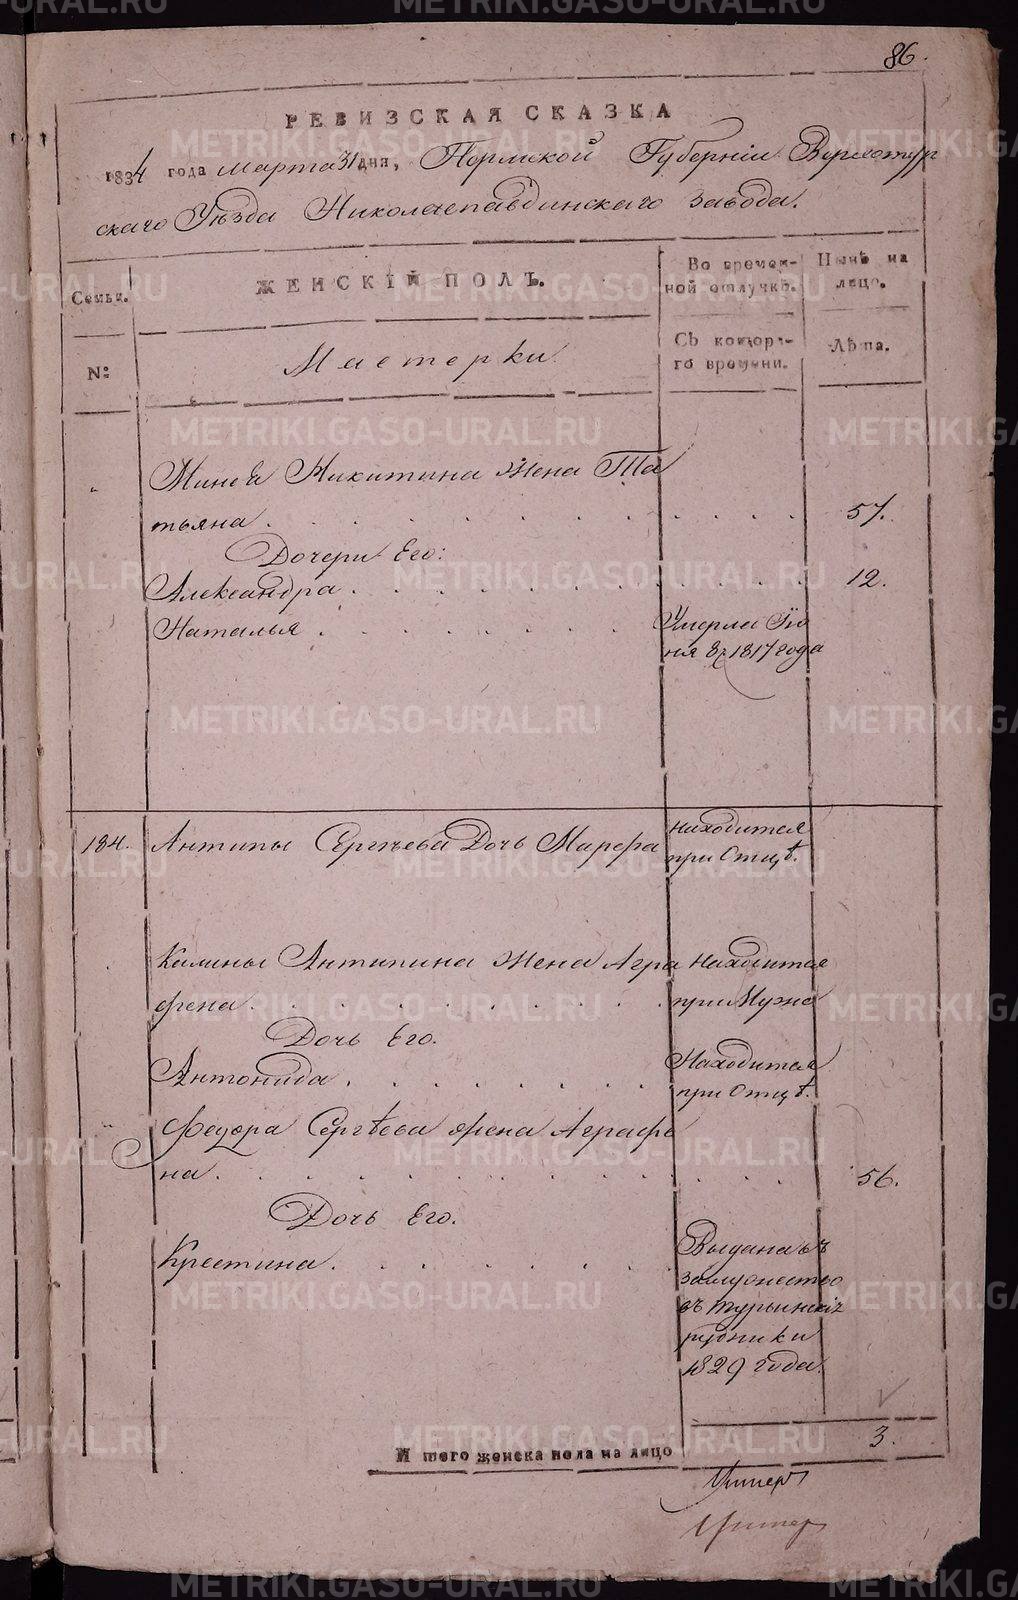 86.
РЕВИЗСКАЯ СКАЗКА
1834 года марта 31 дня, Пермской Губернiи Верхотур
скаго Уѣзда Николаепавдинскаго завода.
Семьи.
ЖЕНСКIЙ ПОЛЪ.
Во времен-
ной отлучкѣ.
Нынѣ на
лицо.
№
Мастерки
Съ котораг-
го времени.
Лѣта.
Минея Никитина жена Та
тьяна.
57.
Дочери Его:
Александра.
12.
Наталья
Умерла Iю
ня 8 1817 года
184.
Антипы Сергѣева Дочь Марфа
находится
при Отцѣ.
Калины Антипина жена Агра
фена.
находится
при Мужѣ
Дочь Его.
Антонида.
Находится
при Отцѣ.
Федора Сергѣева жена Аграфе
на.
56.
Дочь Его.
Крестина.
Выдана въ
замужество
въ турьинскiе
рудники
1829 года.
Итого женска пола на лицо
3.
METRIKI.GASO-URAL.RU